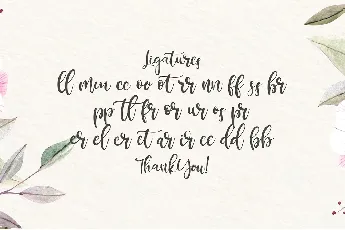 Ligatures
ll mm cc oo ot rr nn ff ss br
pp tt fr or ur os pr
er el er et ar ir cc dd bb
Thank You!